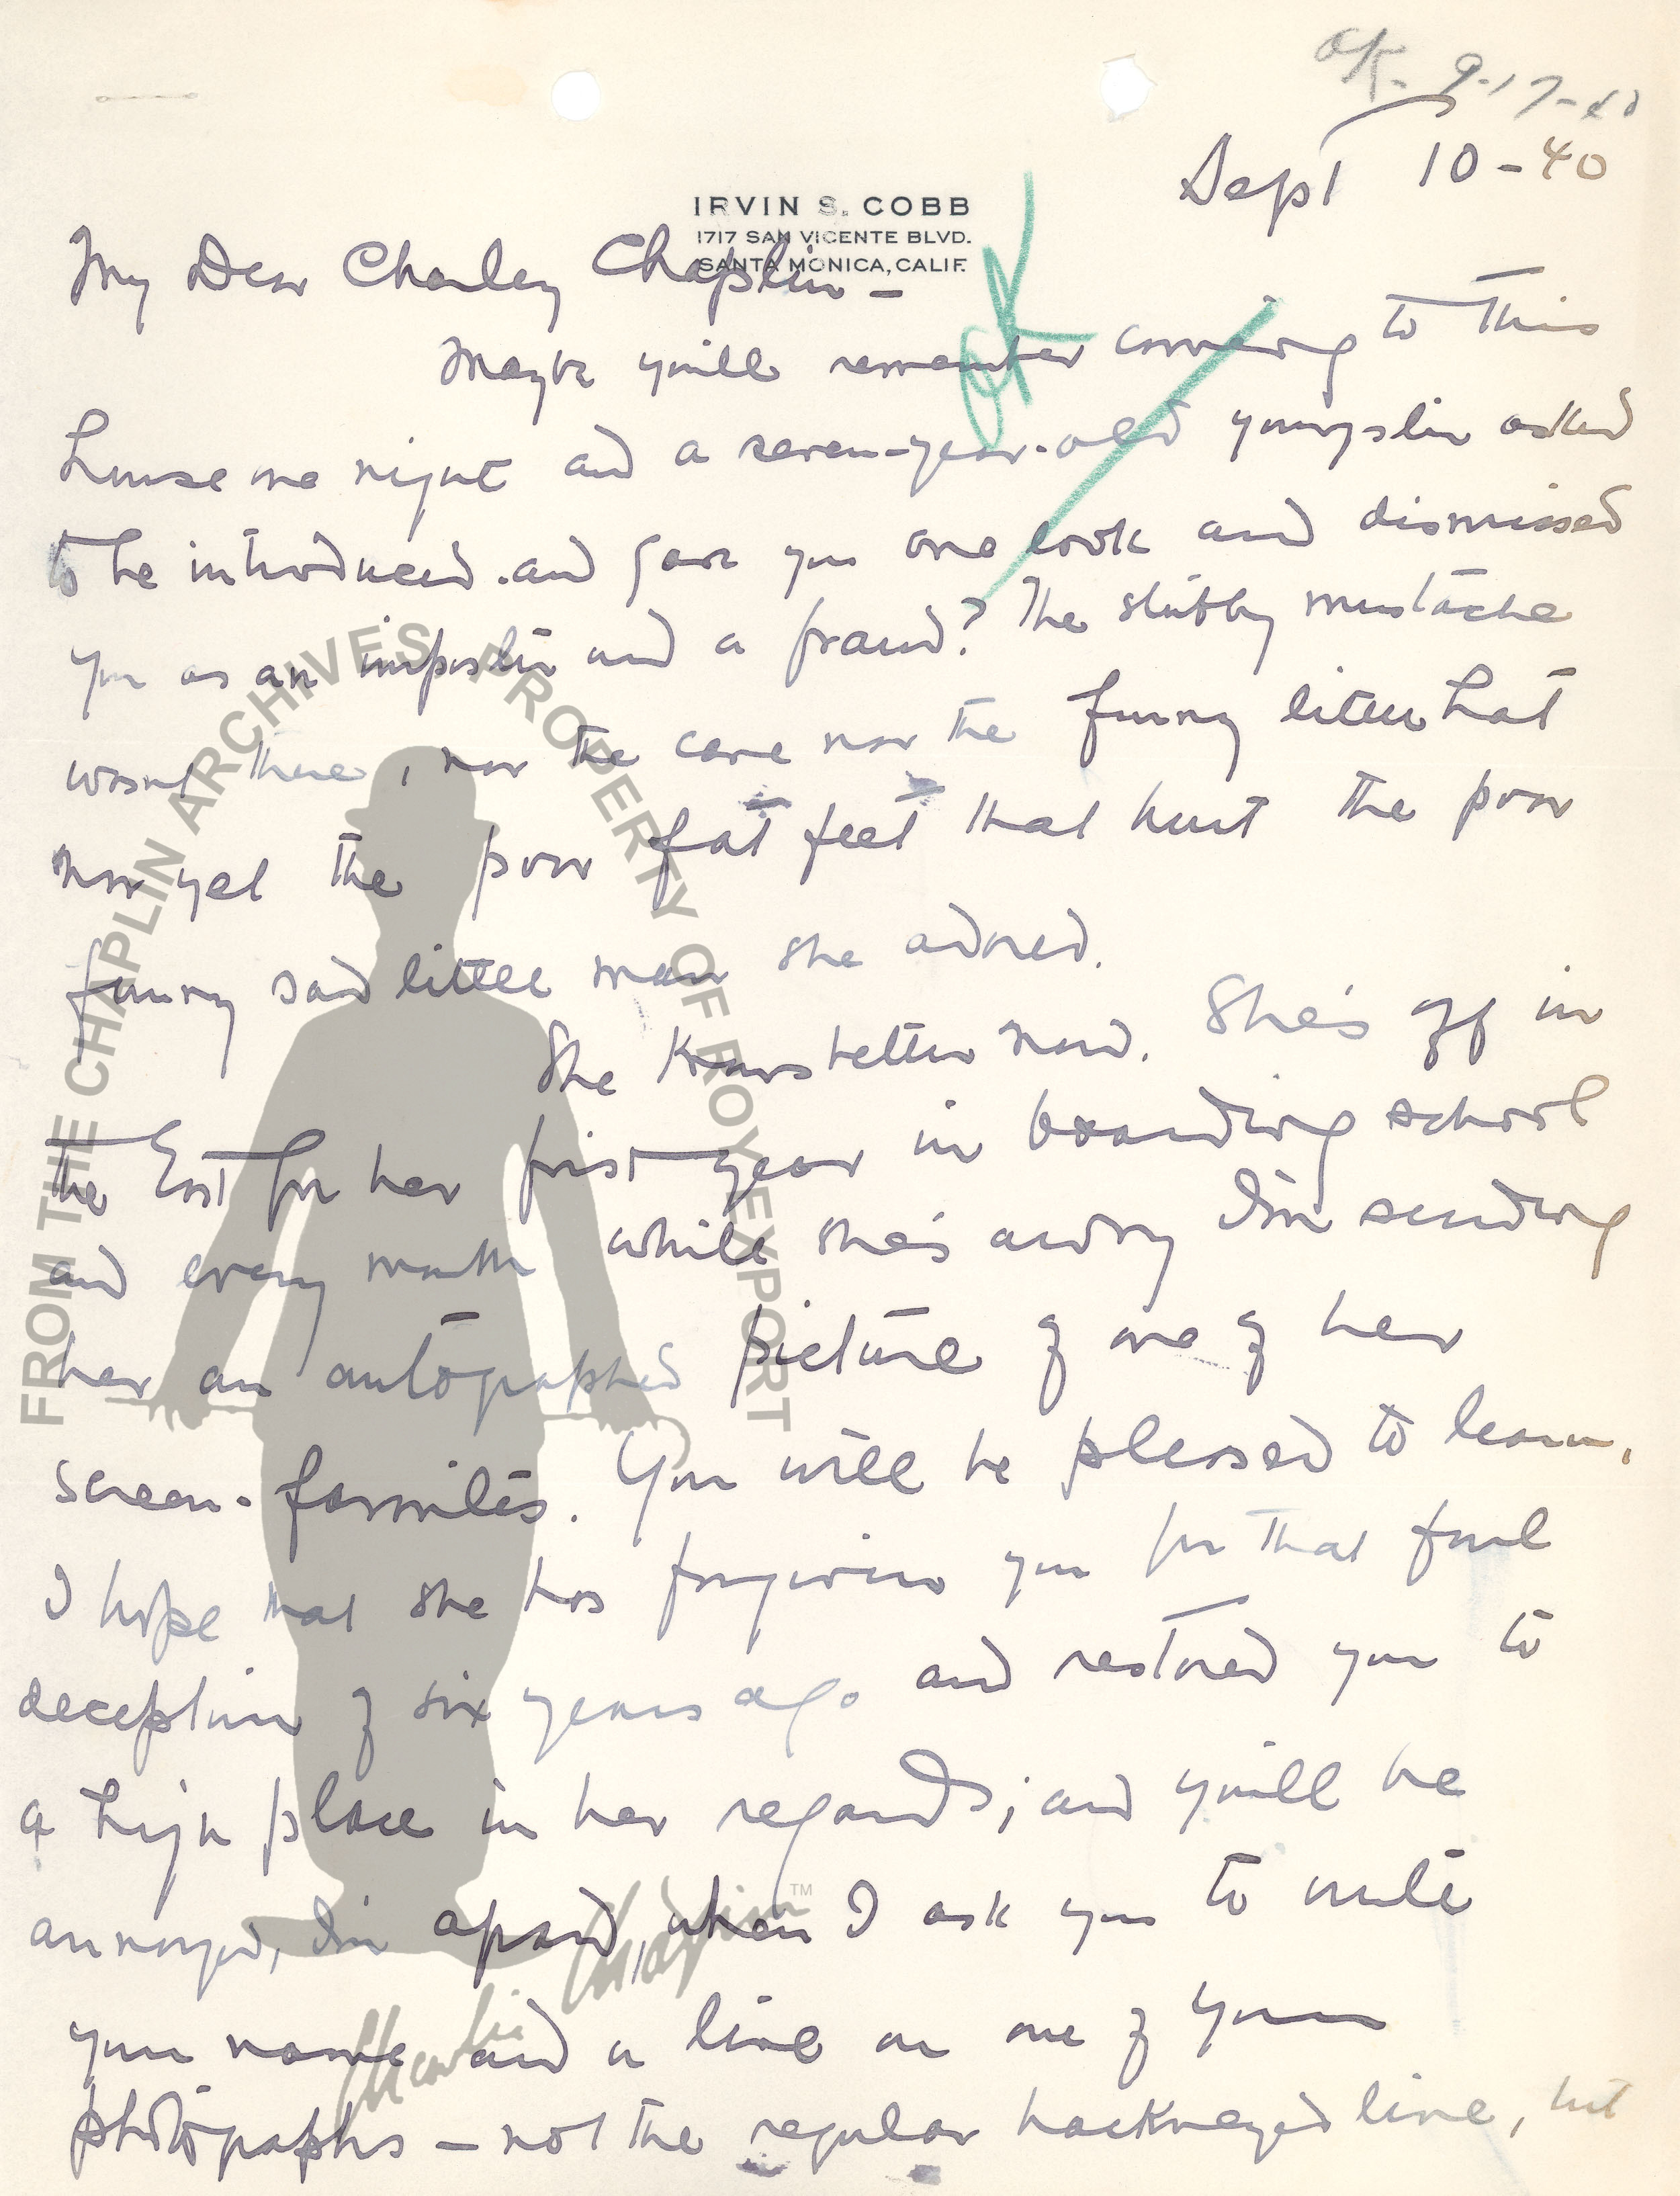 OK- 9-17-40
Sept 10-40
IRVIN S. COBB
1717 SAN VICENTE BLVD.
SANTA MONICA, CALIF.
OK
My Dear Charley Chaplin -
Maybe you'll remember coming to this
house one night and a seven-year-old youngster asked
to be introduced. and gave you one look and dismissed
you as an imposter and a fraud? The stubby mustache
wasnt there, nor the cane nor the funny little hat
nor yet the poor flat feet that hurt the poor
funny sad little man she adored.
She knows better now. She's off in
the East for her first year in boarding school
and every month while she's away I'm sending
her an autographed picture of one of her
screen-favorites. You will be pleased to learn,
I hope that she has forgiven you for that foul
deception of six years ago and restored you to
a high place in her regards; and you'll be
annoyed, I'm afraid, when I ask you to write
your name and a line on one of your
photographs - not the regular hackneyed line, but
FROM THE CHAPLIN ARCHIVES PROPERTY OF ROY EXPORT
Charlie Chaplin™